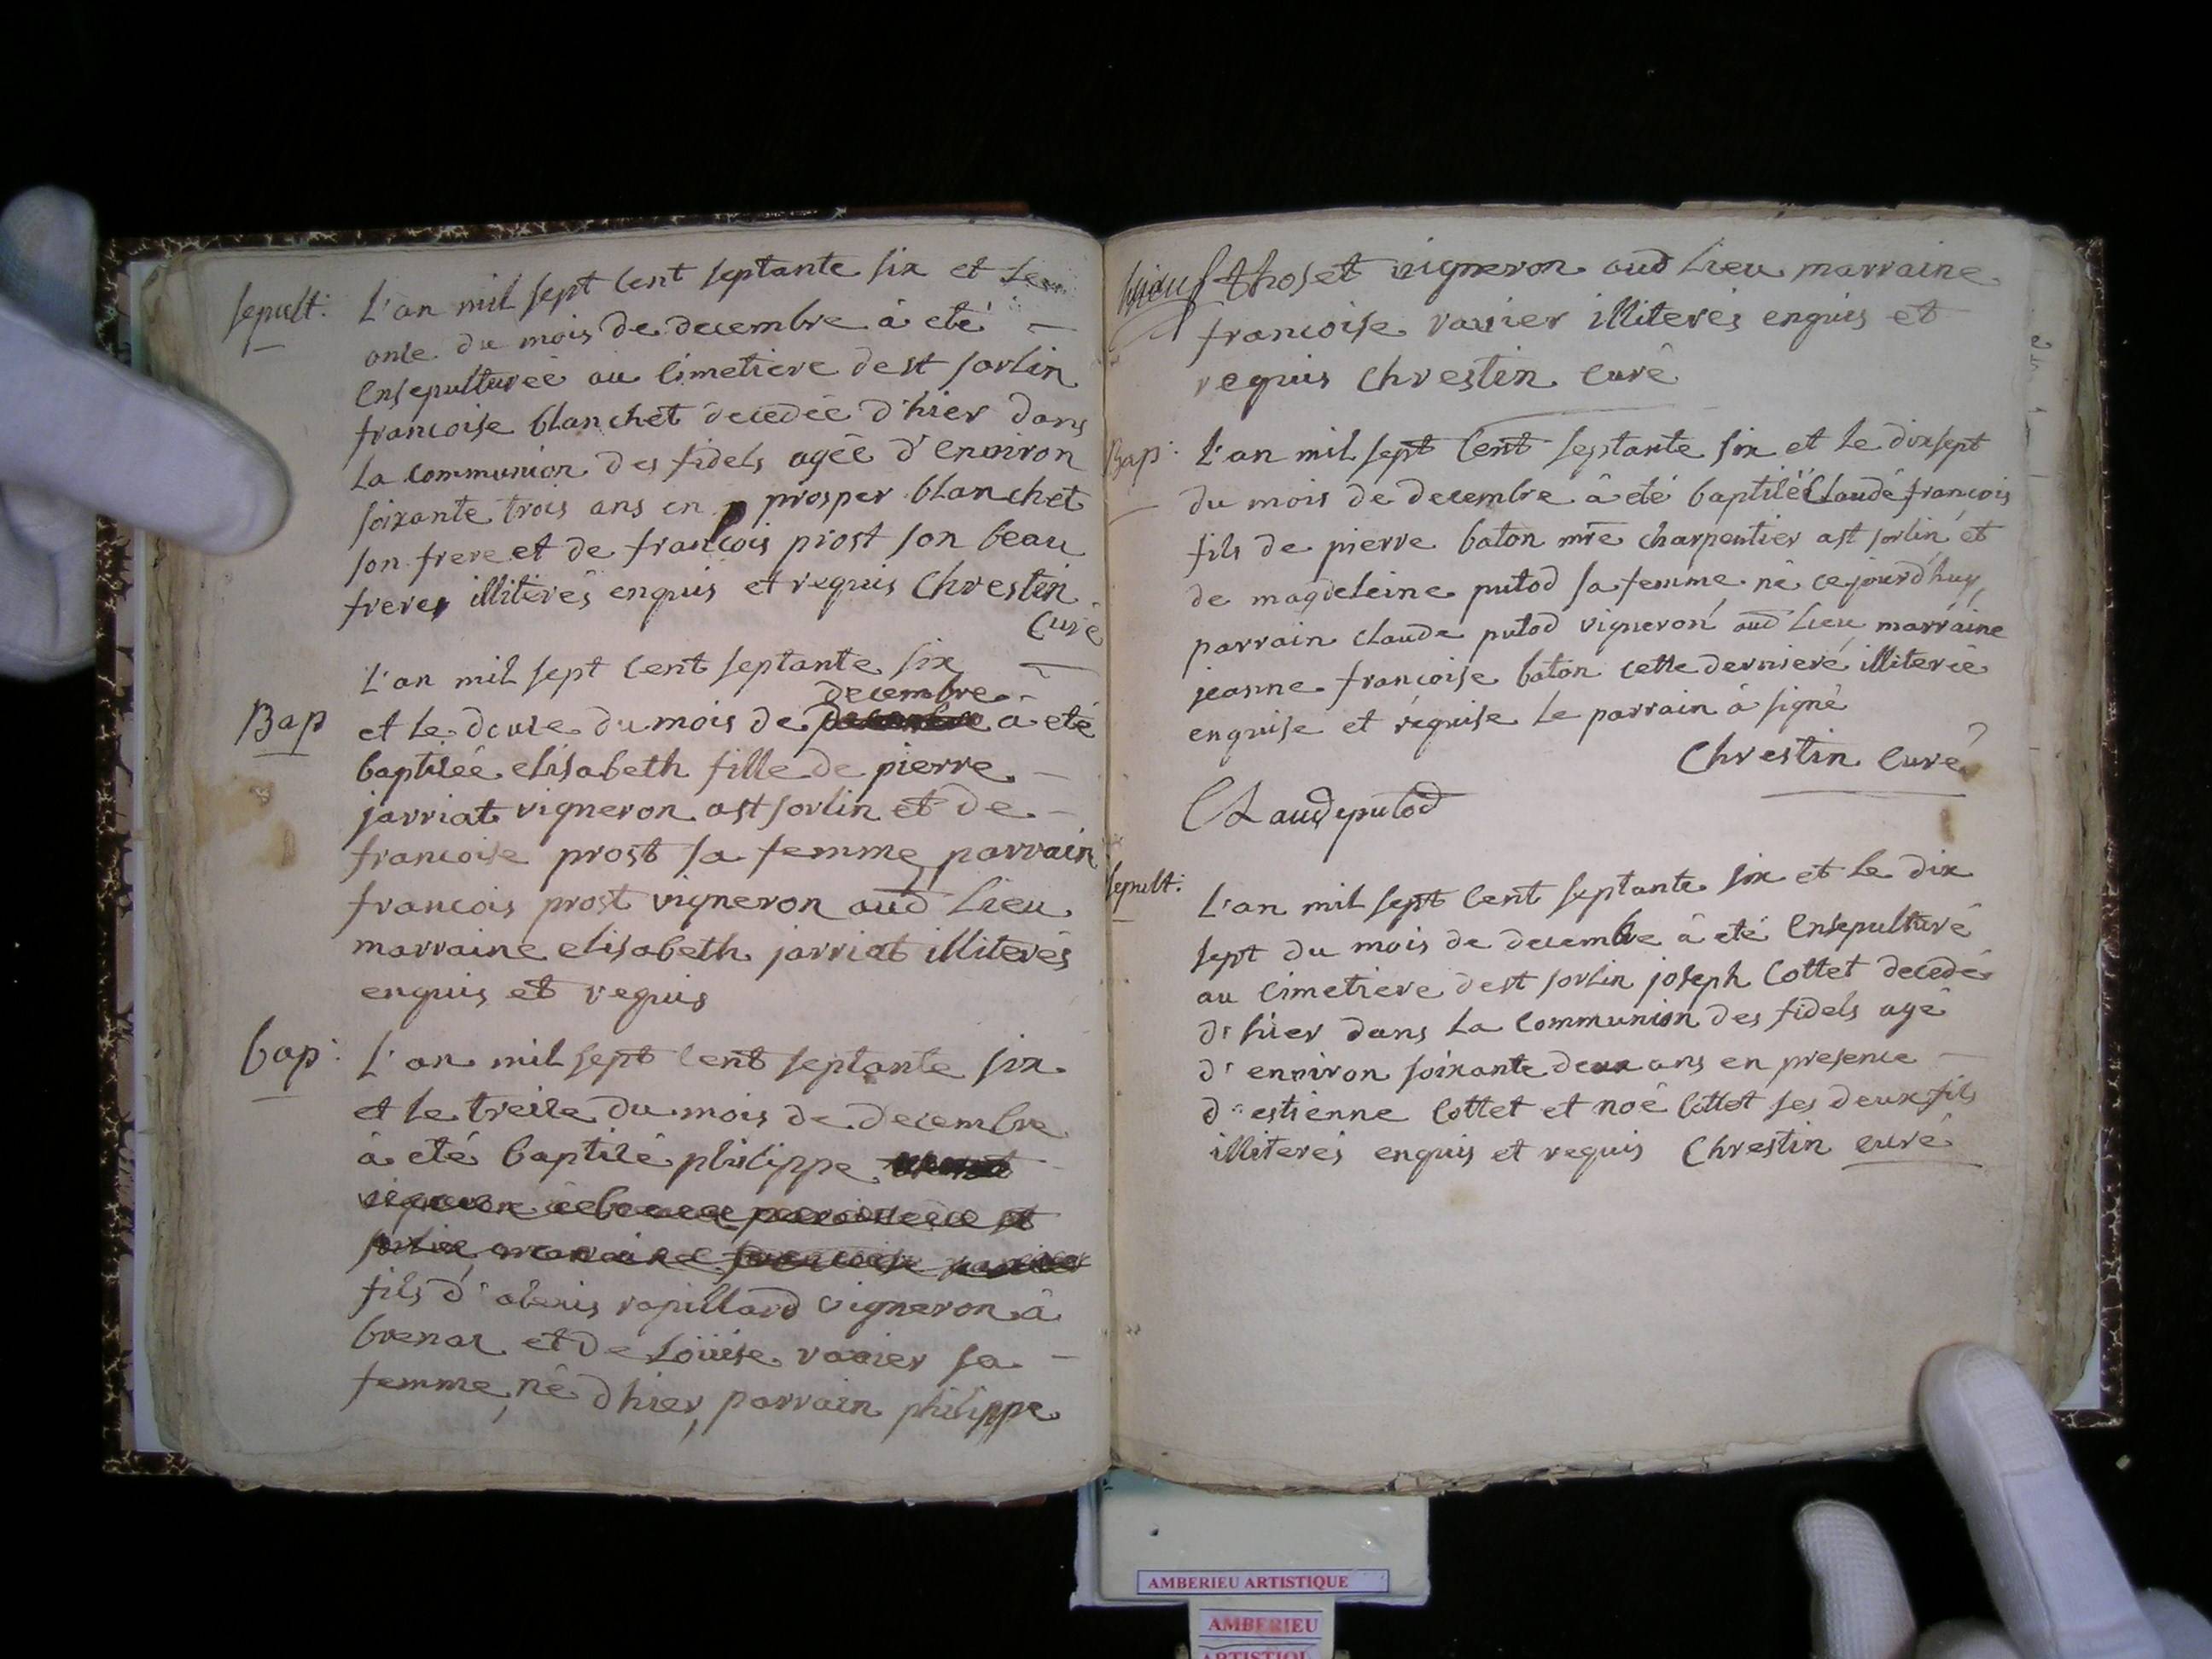 sepult:
L'an mil sept cent septante six et le
onse du mois de decembre à eté
ensepulturéé au cimetiere de st sorlin
francoise blanchet decedée d'hier dans
la communion des fidels agéé d'environ
soixante trois ans en p prosper blanchet
son frere et de francois prost son beau
frere illiterés enquis et requis Chrestin
Curé
Bap
L'an mil sept cent septante six
decembre
et le douse du mois de à eté
baptisée elisabeth fille de pierre
jarriat vigneron a st sorlin et de
francoise prost sa femme parrain
francois prost vigneron aud lieu
marraine elisabeth jarriat illiterés
enquis et requis
bap:
L'an mil sept cent septante six
et le treise du mois de decembre
à eté baptisé philippe
vigneron
marraine francoise
fils d'alexis rapillard vigneron à
brenas et de Loüise vavier sa
femme, né d hier, parrain philippe
thoset vigneron aud lieu marraine
francoise vavier illiterés enquis et
requis chrestin curé
Bap:
L'an mil sept cent septante six et le dixsept
du mois de decembre à eté baptisé Claude francois
fils de pierre baton mre charpentier a st sorlin et
de magdeleine putod sa femme né ce jourd'huy
parrain claude putod vigneron aud lieu marraine
jeanne francoise baton cette derniere illiterée
enquise et requise le parrain à signé
Chrestin Curé
Claude putod
sepult:
L'an mil sept cent septante six et le dix
sept du mois de decembre à eté ensepulturé
au cimetiere de st sorlin joseph Cottet decedé
d'hier dans la communion des fidels agé
d'environ soixante deux ans en presence
d'estienne Cottet et noé Cottet ses deux fils
illiterés enquis et requis Chrestin curé
AMBERIEU ARTISTIQUE
AMBERIEU
ARTISTIQUE